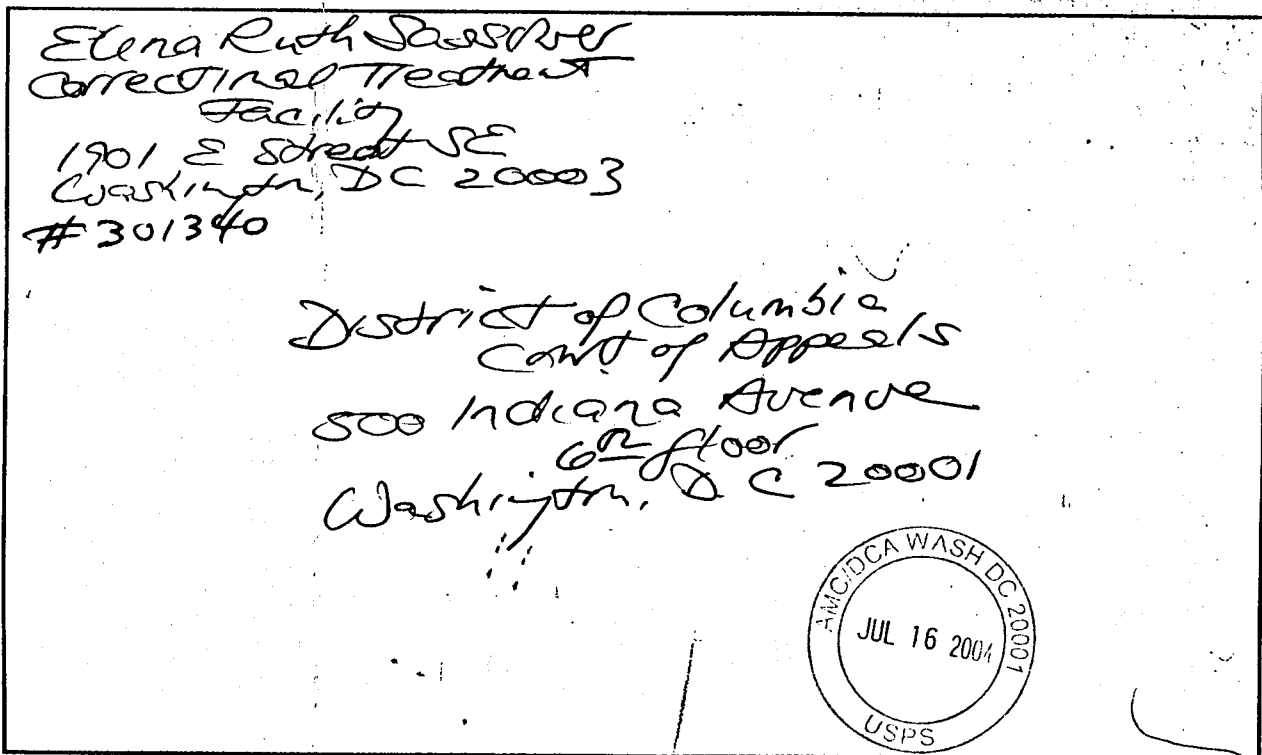 Elena Ruth Sassower
Correctional Treatment
Facility
1901 E Street SE
Washington, DC 20003
#301340
District of Columbia
Court of Appeals
500 Indiana Avenue
6th floor
Washington, DC 20001
AMC/DCA WASH DC 20001
JUL 16 2004
USPS